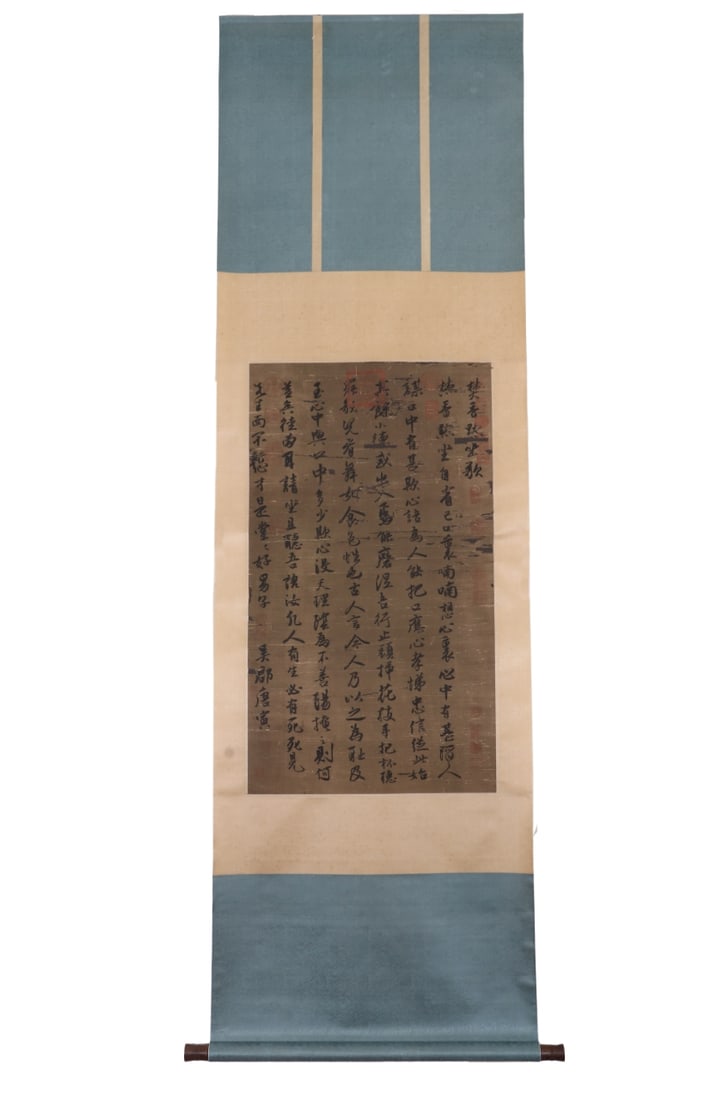 焚香默坐歌
焚香默坐自省己口裏喃喃想心裏心中有甚陷人
謀口中有甚欺心語為人能把口應心孝悌忠信從此始
其餘小德或出入焉能磨涅吾行止頭插花枝手把杯聽
罷歌兒看舞女食色性也古人言今人乃以之為恥及
至心中與口中多少欺心沒天理陰為不善陽掩之則何
益矣徒勞耳請坐且聽吾語汝凡人有生必有死死見
先生面不慚才是堂堂好男子 吳郡唐寅